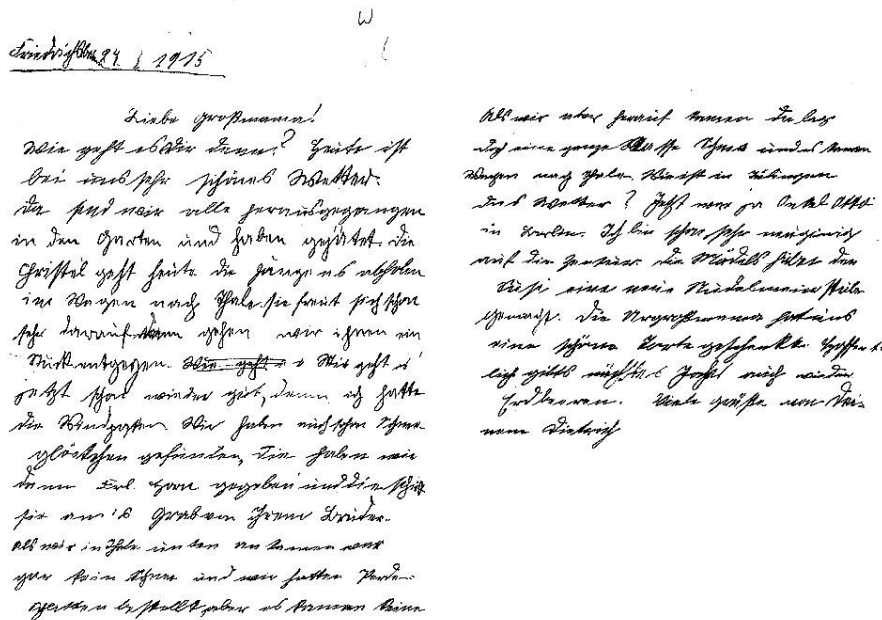 W
Friedrichsbr. 24. 1915
Liebe Großmama!
Wie geht es Dir denn? Heute ist
bei uns sehr schönes Wetter.
Da sind wir alle herausgegangen
in den Garten und haben gejätet. Die
Christel geht heute die abholen
im Wagen nach Thale. sie freut sich schon
sehr darauf dann gehen wir ihnen ein
Stück entgegen. Wie geht e Mir geht es
jetzt schon wieder gut, denn ich hatte
die Windpocken Wir haben auch schon Schnee
glöckchen gefunden, Die haben wir
dann Frl. Horn gegeben und die schickt
sie an's Grab von ihrem Bruder.
Als wir in Thale unten an kamen war
gar kein Schnee und wir hatten Perde-
bestellt, aber es kamen keine
Als wir aber herauf kamen da lag
doch eine ganze Masse Schnee und es kamen
Wagen nach Thale. Wie ist in Tübingen
das Wetter? Jetzt war ja Onkel Otto
in Berlin. Ich bin schon sehr neugierig
auf die die Mädels hat der
Susi eine neue Nudel
gemacht. Die Urgroßmama hat uns
eine schöne Torte geschenkt. Hoffent-
lich gibts nächstes Jahr auch wieder
Erdbeeren. Viele grüße von Dei-
nem Dietrich